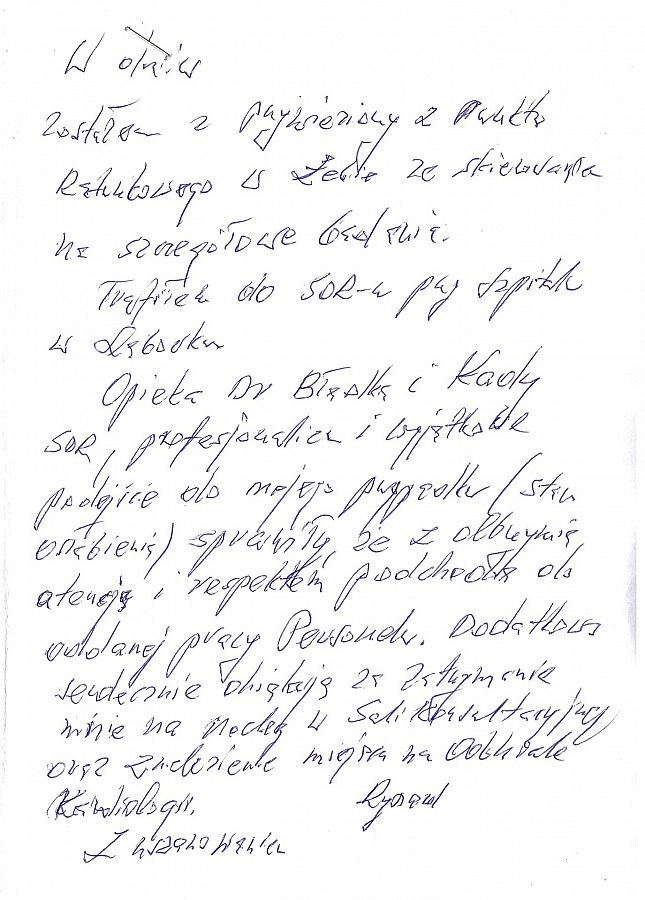 W dniu
Zostałem z przywieziony z Punktu
Ratunkowego w Łebie ze skierowania
na szczegółowe badania.
Trafiłem do SOR-u przy szpitalu
w Lęborku
Opieka Dr Błądka i Kadry
SOR, profesjonalizm i wyjątkowe
podejście do mojego przypadku (stan
osłabienia) sprawiły, że z olbrzymią
atencją i respektem podchodzę do
oddanej pracy Personelu. Dodatkowo
serdecznie dziękuję za zatrzymanie
mnie na nockę w Sali Konsultacyjnej
oraz znalezienie miejsca na Oddziale
Kardiologii. Ryszard
Z uszanowaniem